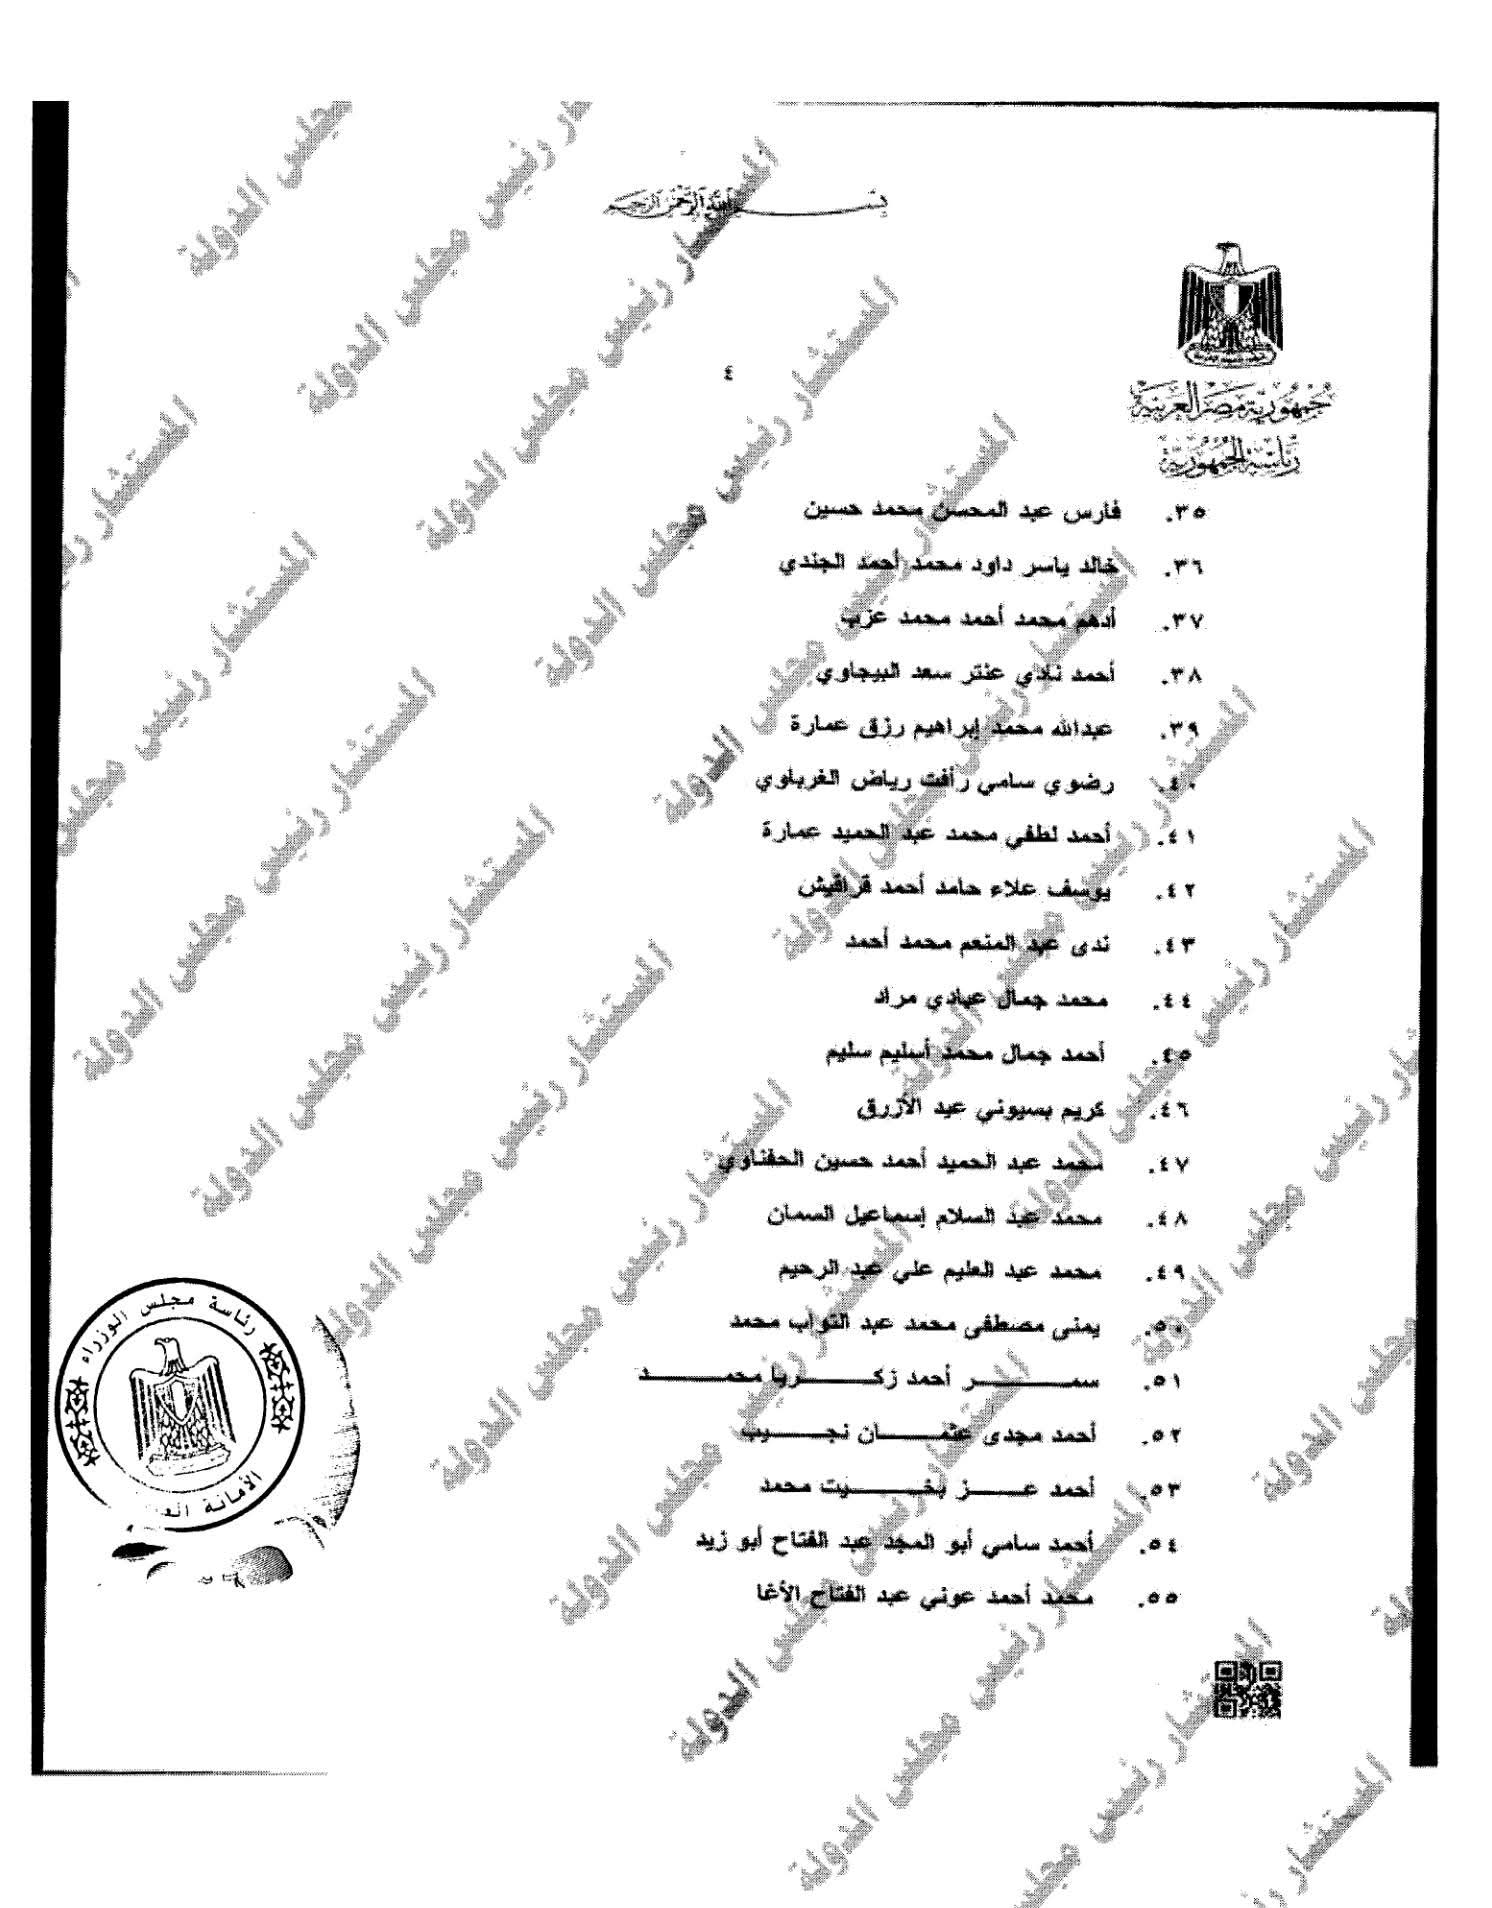 بسم الله الرحمن الرحيم
جمهورية مصر العربية
رئاسة الجمهورية
٤
٣٥. فارس عبد المحسن محمد حسين
٣٦. خالد ياسر داود محمد أحمد الجندي
٣٧. أدهم محمد أحمد محمد عزب
٣٨. أحمد نادي عنتر سعد البيجاوي
٣٩. عبدالله محمد إبراهيم رزق عمارة
٤٠. رضوي سامي رأفت رياض الغرباوي
٤١. أحمد لطفي محمد عبد الحميد عمارة
٤٢. يوسف علاء حامد أحمد قراقيش
٤٣. ندى عبد المنعم محمد أحمد
٤٤. محمد جمال عبادي مراد
٤٥. أحمد جمال محمد أسليم سليم
٤٦. كريم بسيوني عبد الأزرق
٤٧. محمد عبد الحميد أحمد حسين الحفناوي
٤٨. محمد عبد السلام إسماعيل السمان
٤٩. محمد عبد العليم علي عبد الرحيم
٥٠. يمنى مصطفى محمد عبد التواب محمد
٥١. سمـــــر أحمد زكـــــريا محمـــــد
٥٢. أحمد مجدى عثمـــــان نجـــــيب
٥٣. أحمد عـــــز بخـــــيت محمد
٥٤. أحمد سامي أبو المجد عبد الفتاح أبو زيد
٥٥. محمد أحمد عوني عبد الفتاح الأغا
رئاسة مجلس الوزراء
الأمانة
المستشار رئيس مجلس الدولة